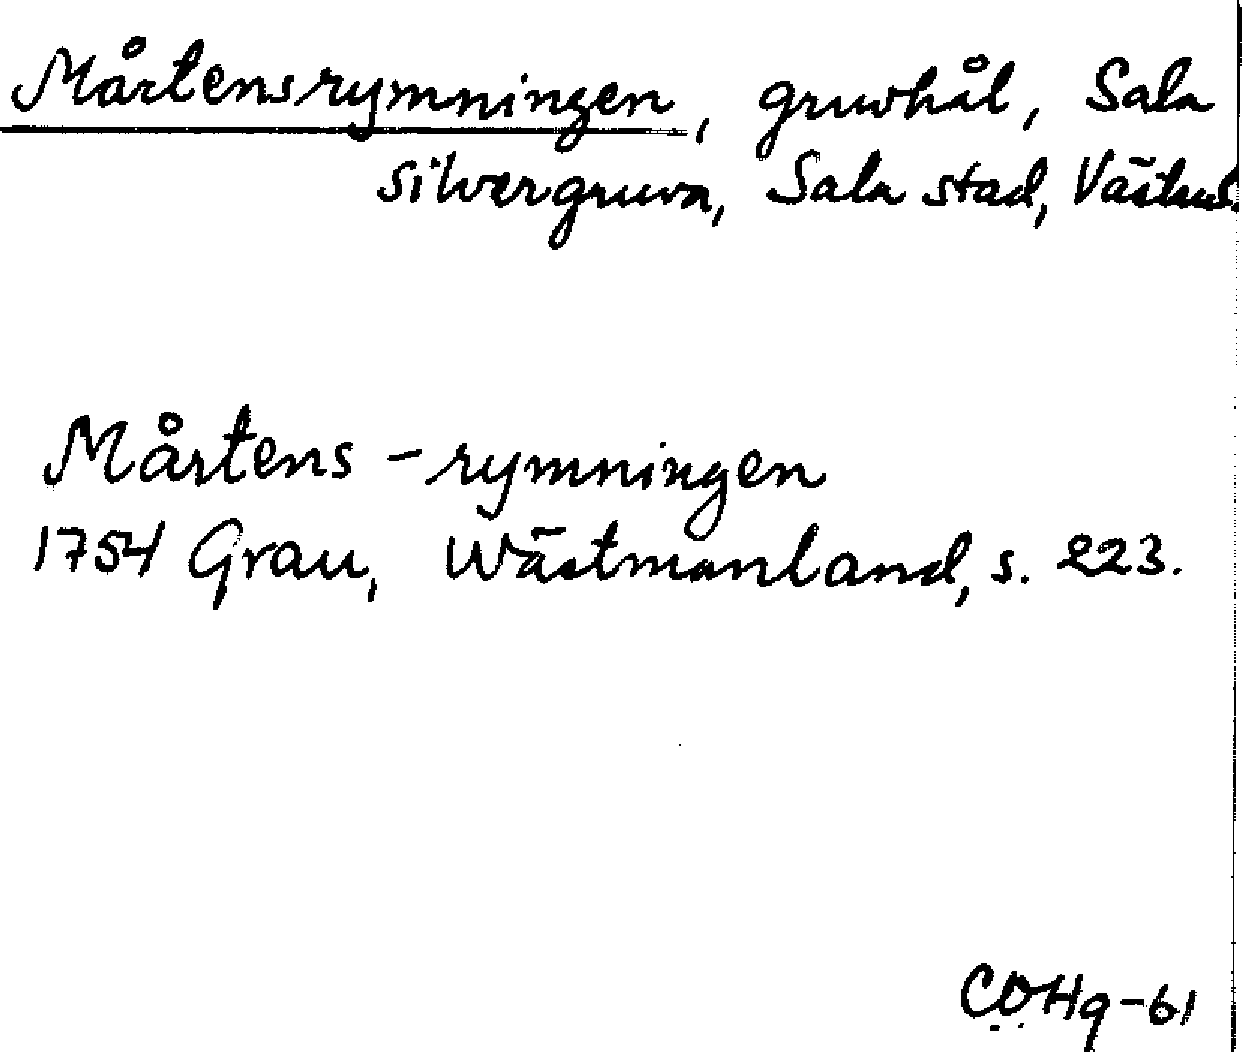 Mårtensrymningen, gruvhål, Sala
silvergruva, Sala stad, Västml.
Mårtens-rymningen
1754 Grau, Wästmanland, s. 223.
COHg-61